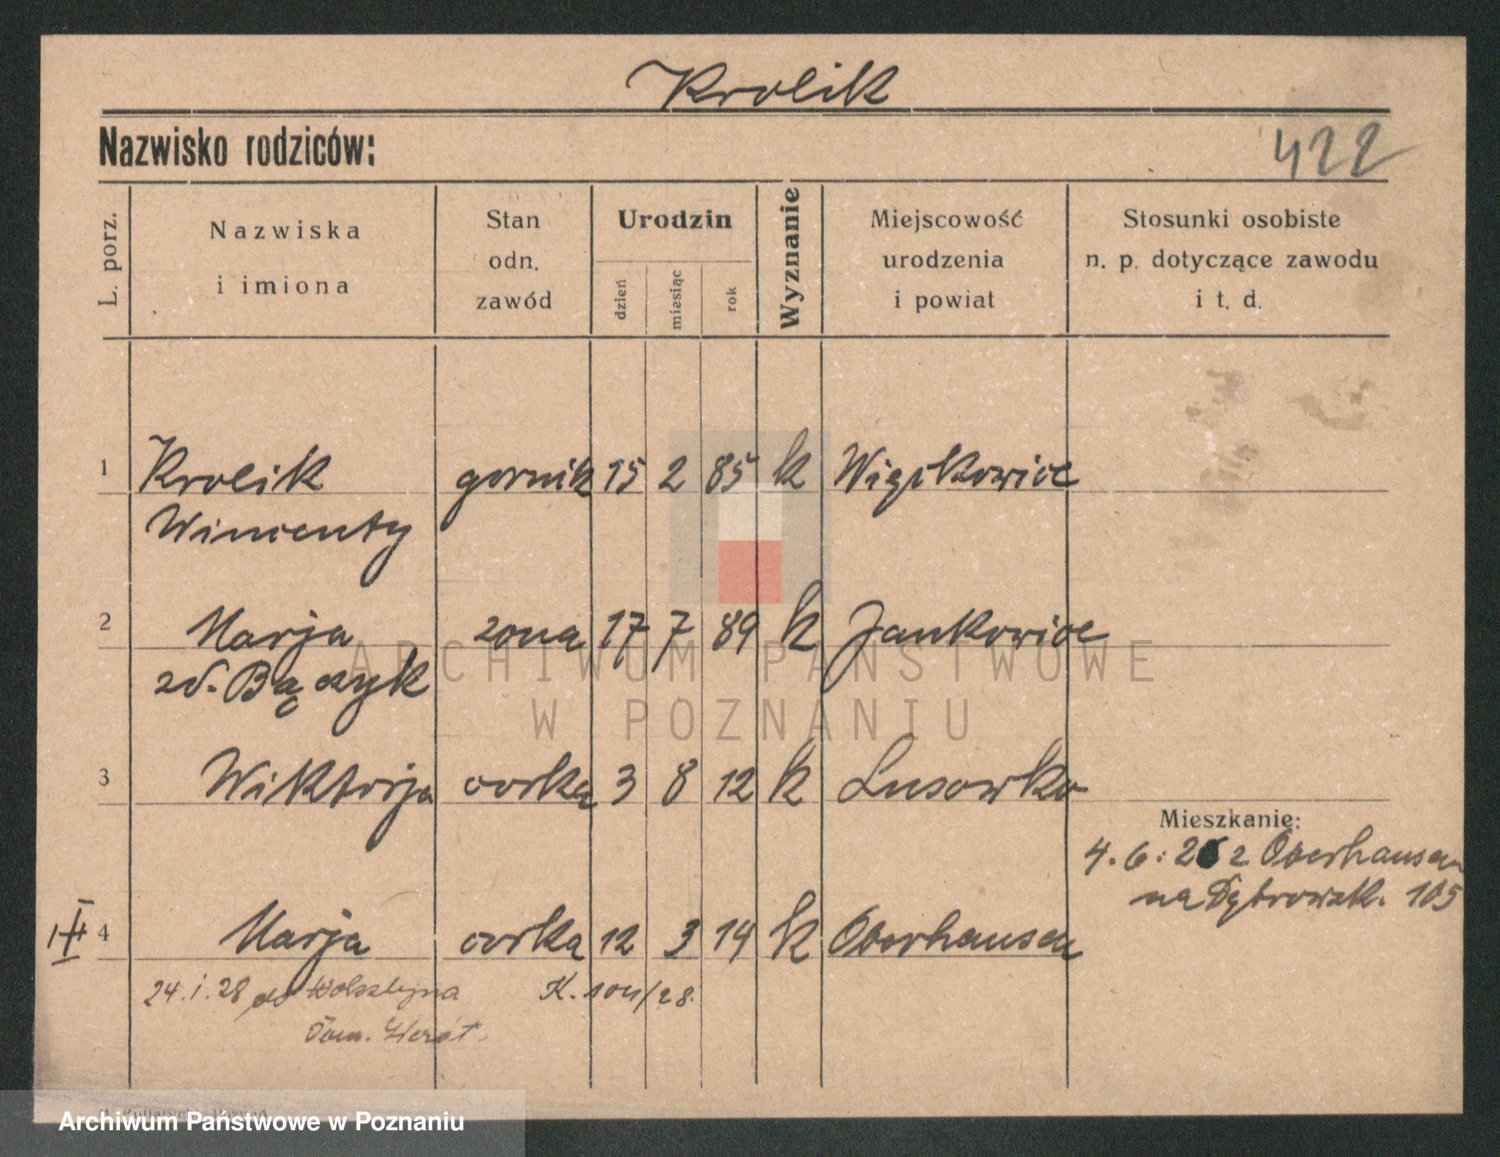 Krolik
Nazwisko rodziców:
422
L. porz.
Nazwiska
i imiona
Stan
odn.
zawód
Urodzin
dzień
miesiąc
rok
Wyznanie
Miejscowość
urodzenia
i powiat
Stosunki osobiste
n. p. dotyczące zawodu
i t. d.
1 Krolik gornik 15 2 85 k Więckowice
Wincenty
2 Marja zona 17 7 89 k Jankowice
zd. Bączyk
ARCHIWUM PAŃSTWOWE
W POZNANIU
3 Wiktorja corka 3 8 12 k Lusowko
Mieszkanie:
4. 6. 2 z Oberhausen
na Dąbrowsk. 105
4 Marja corka 12 3 14 k Oberhausen
24. 1. 28 do Wolsztyna K. 1011/28.
Dom.
Archiwum Państwowe w Poznaniu